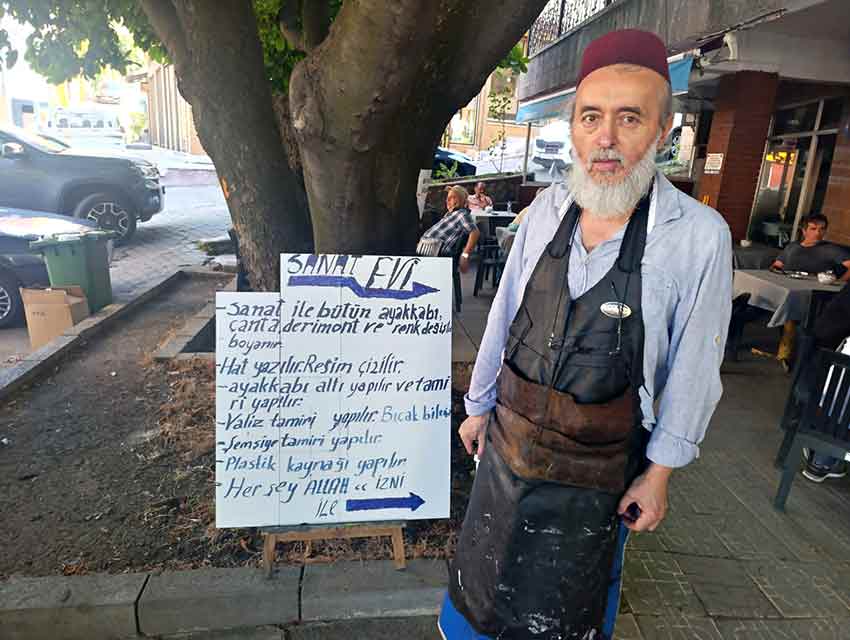 SANAT EVİ
-Sanat ile bütün ayakkabı,
çanta, derimont ve renk değişi
boyanır.
-Hat yazılır. Resim çizilir.
-ayakkabı altı yapılır ve tami
ri yapılır.
-Valiz tamiri yapılır. Bıçak
-Şemsiye tamiri yapılır.
-Plastik kaynağı yapılır.
-Her şey ALLAH cc İZNİ
İLE